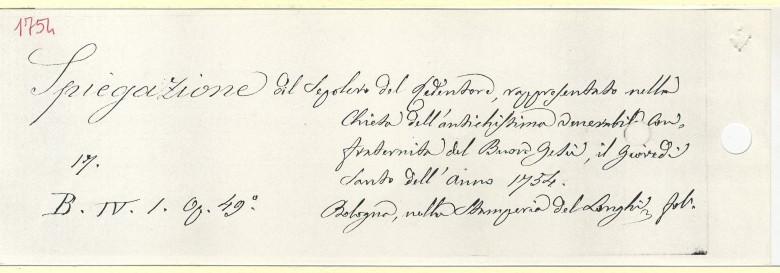 1754
Spiegazione del Sepolcro del Redentore, rappresentato nella
Chiesa dell'antichissima Venerabil. Con=
fraternita del Buon Gesù, il Giovedì
17.
Santo dell'anno 1754.
B. IV. 1. Op. 49º.
Bologna, nella Stamperia del Longhi, fol.